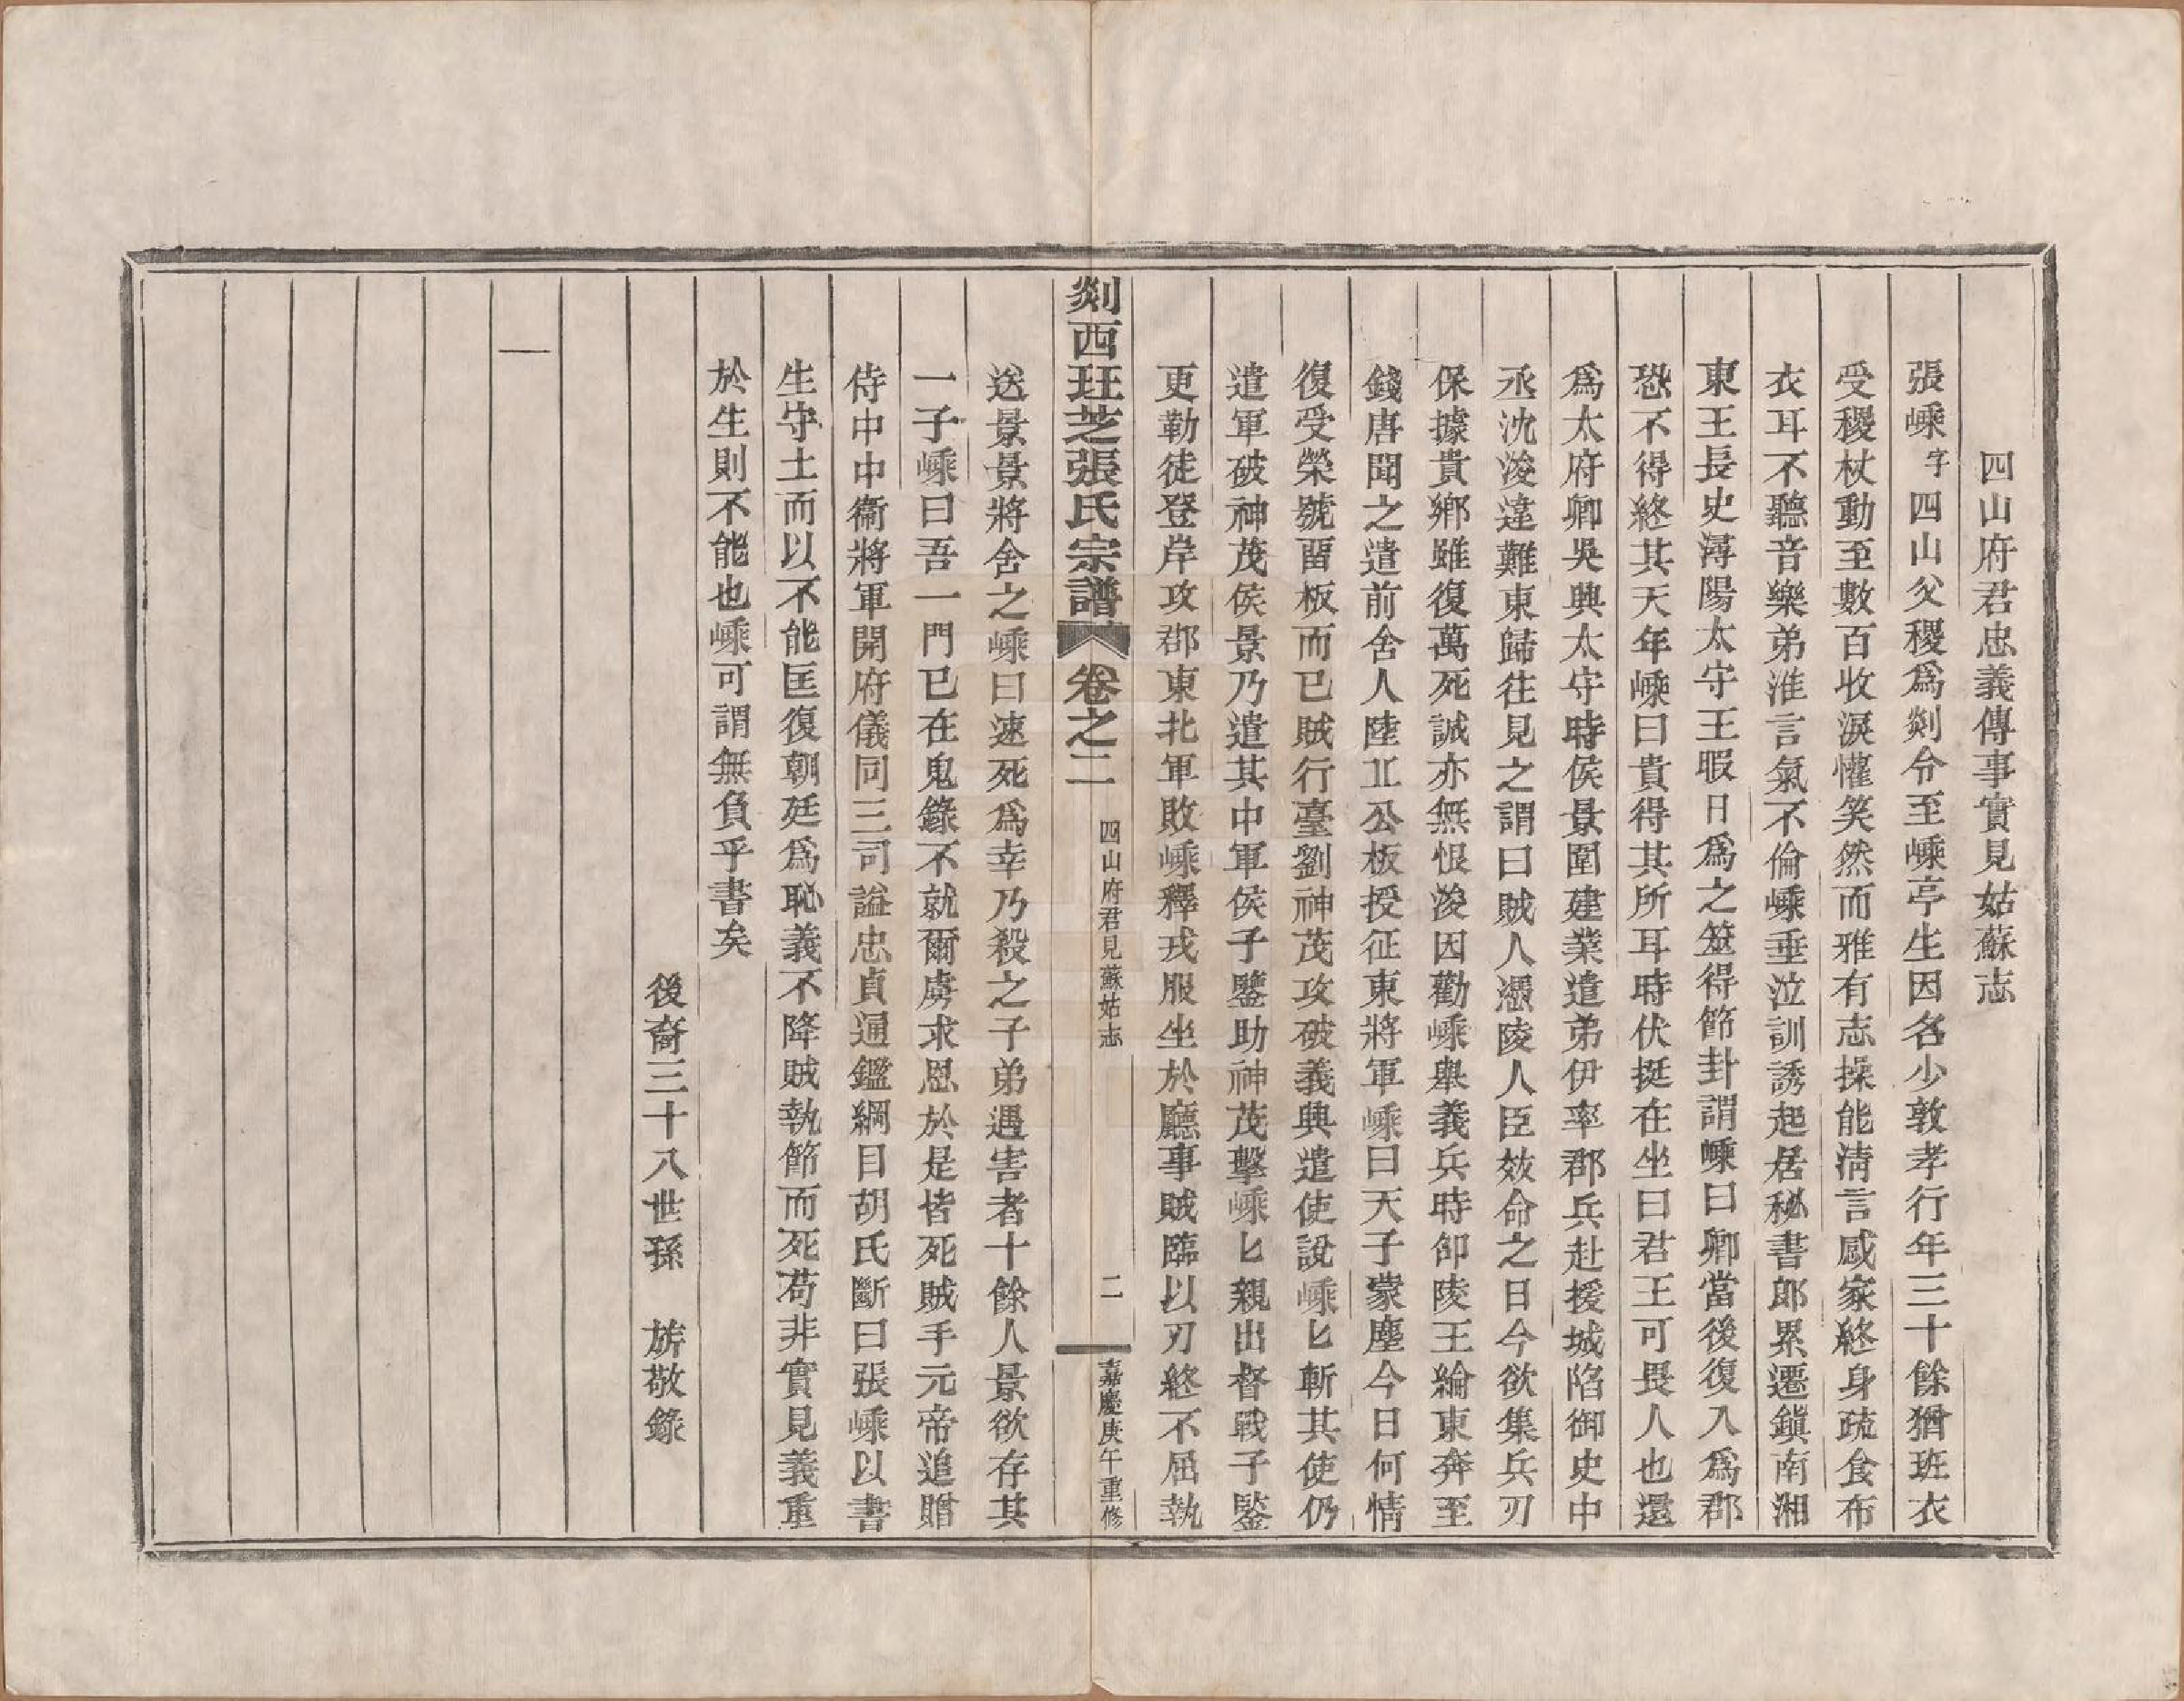 四山府君忠義傳事實見姑蘇志
張嵊字四山父稷爲剡令至嵊亭生因名少敦孝行年三十餘猶班衣
受稷杖動至數百收淚懽笑然而雅有志操能淸言感家終身疏食布
衣耳不聽音樂弟淮言氣不倫嵊垂泣訓誘起居秘書郎累遷鎭南湘
東王長史潯陽太守王暇日爲之筮得節卦謂嵊曰卿當後復入爲郡
恐不得終其天年嵊曰貴得其所耳時伏挺在坐曰君王可畏人也還
爲太府卿吳興太守時侯景圍建業遣弟伊率郡兵赴援城陷御史中
丞沈浚違難東歸往見之謂曰賊人憑陵人臣效命之日今欲集兵刃
保據貴鄉雖復萬死誠亦無恨浚因勸嵊舉義兵時邵陵王綸東奔至
錢唐聞之遣前舍人陸丘公板授征東將軍嵊曰天子蒙塵今日何情
復受榮號留板而已賊行臺劉神茂攻破義興遣使說嵊匕斬其使仍
遣軍破神茂侯景乃遣其中軍侯子鑒助神茂擊嵊匕親出督戰子鑒
更勒徒登岸攻郡東北軍敗嵊釋戎服坐於廳事賊臨以刃終不屈執
剡西珏芝張氏宗譜 卷之二 四山府君見蘇姑志 二 嘉慶庚午重修
送景景將舍之嵊曰速死爲幸乃殺之子弟遇害者十餘人景欲存其
一子嵊曰吾一門已在鬼錄不就爾虜求恩於是皆死賊手元帝追贈
侍中中衞將軍開府儀同三司謚忠貞通鑑綱目胡氏斷曰張嵊以書
生守土而以不能匡復朝廷爲恥義不降賊執節而死苟非實見義重
於生則不能也嵊可謂無負乎書矣
後裔三十八世孫 旂敬錄